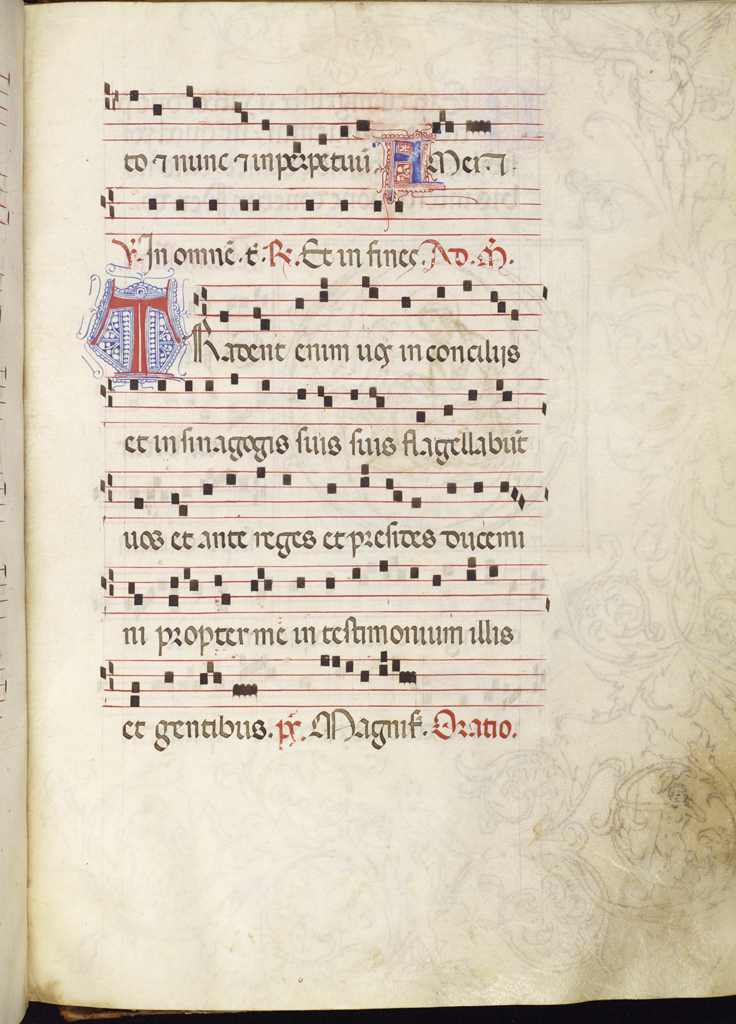 to ⁊ nunc ⁊ inperpetuū AMen. ⁊.
℣. In omnē. t̄. ℟. Et in fines. Ad. M̄.
TRadent enim uos in concilijs
et in sinagogis suis suis flagellabūt
uos et ante reges et presides ducemi
ni propter me in testimonium illis
et gentibus. p̄s. Magnif. Oratio.